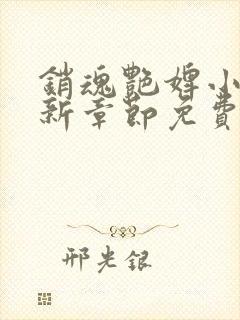 銷魂艷婢小
新章節免費
邢光銀